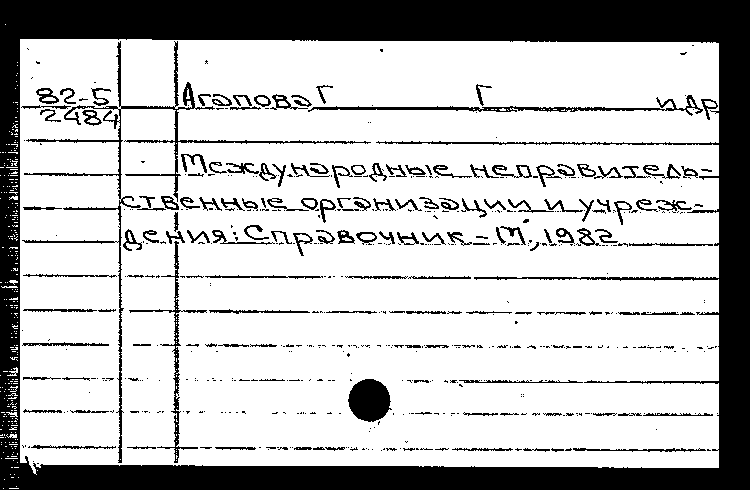 82-5 Агапова Г Г и др
2484
Международные неправитель-
ственные организации и учреж-
дения: Справочник - М., 1982